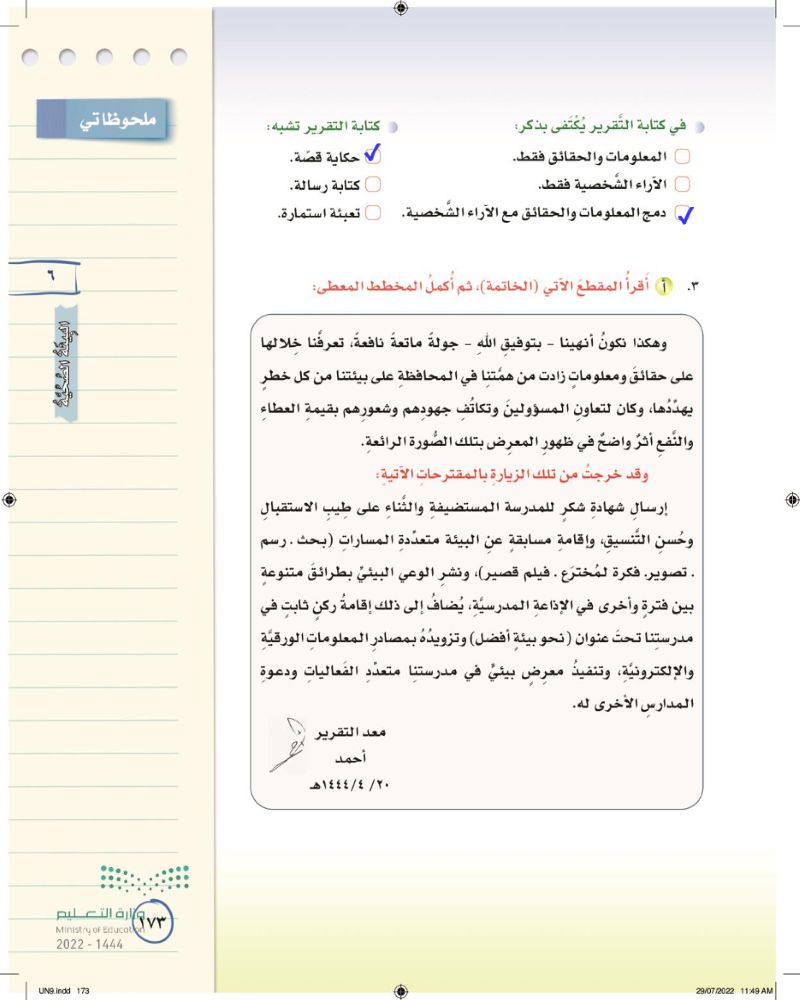 ملحوظاتي
في كتابة التَّقرير يُكْتَفى بذكر:
المعلومات والحقائق فقط.
الآراء الشَّخصية فقط.
دمج المعلومات والحقائق مع الآراء الشَّخصية.
كتابة التقرير تشبه:
حكاية قصّة.
كتابة رسالة.
تعبئة استمارة.
٦
البيئة الصحية
٣. أ أَقرأُ المقطعَ الآتي (الخاتمة)، ثم أُكملُ المخطط المعطى:
وهكذا نكونُ أنهينا - بتوفيقِ اللهِ - جولةً ماتعةً نافعةً، تعرفَّنا خِلالها
على حقائقَ ومعلوماتٍ زادت من همَّتنا في المحافظةِ على بيئتنا من كل خطرٍ
يهدِّدُها، وكان لتعاونِ المسؤولينَ وتكاتُفِ جهودِهم وشعورِهم بقيمةِ العطاءِ
والنَّفعِ أثرٌ واضحٌ في ظهورِ المعرضِ بتلك الصُّورة الرائعةِ.
وقد خرجتُ من تلك الزيارةِ بالمقترحاتِ الآتيةِ:
إرسالِ شهادةِ شكرٍ للمدرسة المستضيفةِ والثَّناءِ على طِيبِ الاستقبالِ
وحُسنِ التَّنسيقِ، وإقامةِ مسابقةٍ عنِ البيئة متعدِّدة المساراتِ (بحث . رسم
. تصوير. فكرة لمُخترَع . فيلم قصير)، ونشرِ الوعي البيئيِّ بطرائقَ متنوعةٍ
بين فترةٍ وأخرى في الإذاعةِ المدرسيَّةِ، يُضافُ إلى ذلك إقامةُ ركنٍ ثابتٍ في
مدرستِنا تحتَ عنوان (نحو بيئةٍ أفضل) وتزويدُهُ بمصادرِ المعلوماتِ الورقيَّةِ
والإلكترونيَّةِ، وتنفيذُ معرضٍ بيئيٍّ في مدرستنِا متعدِّدِ الفَعالياتِ ودعوةِ
المدارسِ الأخرى له.
معد التقرير
أحمد
٢٠/ ٤/ ١٤٤٤هـ
وزارة التعليم
Ministry of Education
2022 - 1444
١٧٣
UN9.indd 173
29/07/2022 11:49 AM